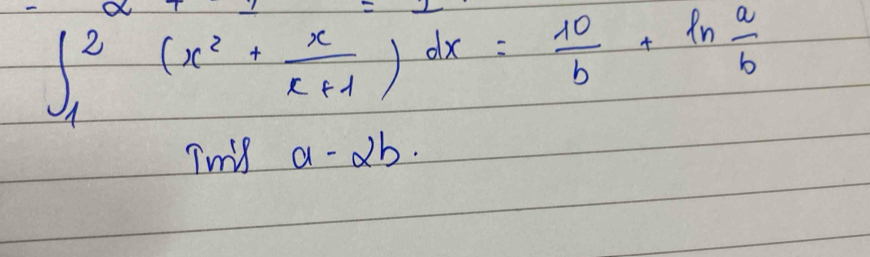 ∫₁² (x² + x/(x+1)) dx = 10/b + ln a/b
Tính a - 2b.